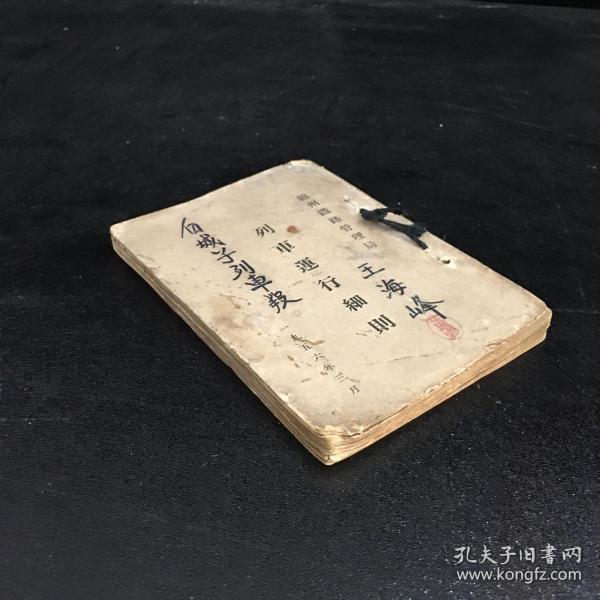 王海峰
錦州鐵路管理局
列車運行細則
一九五六年三月
白城子列車段
孔夫子旧書网
www.kongfz.com